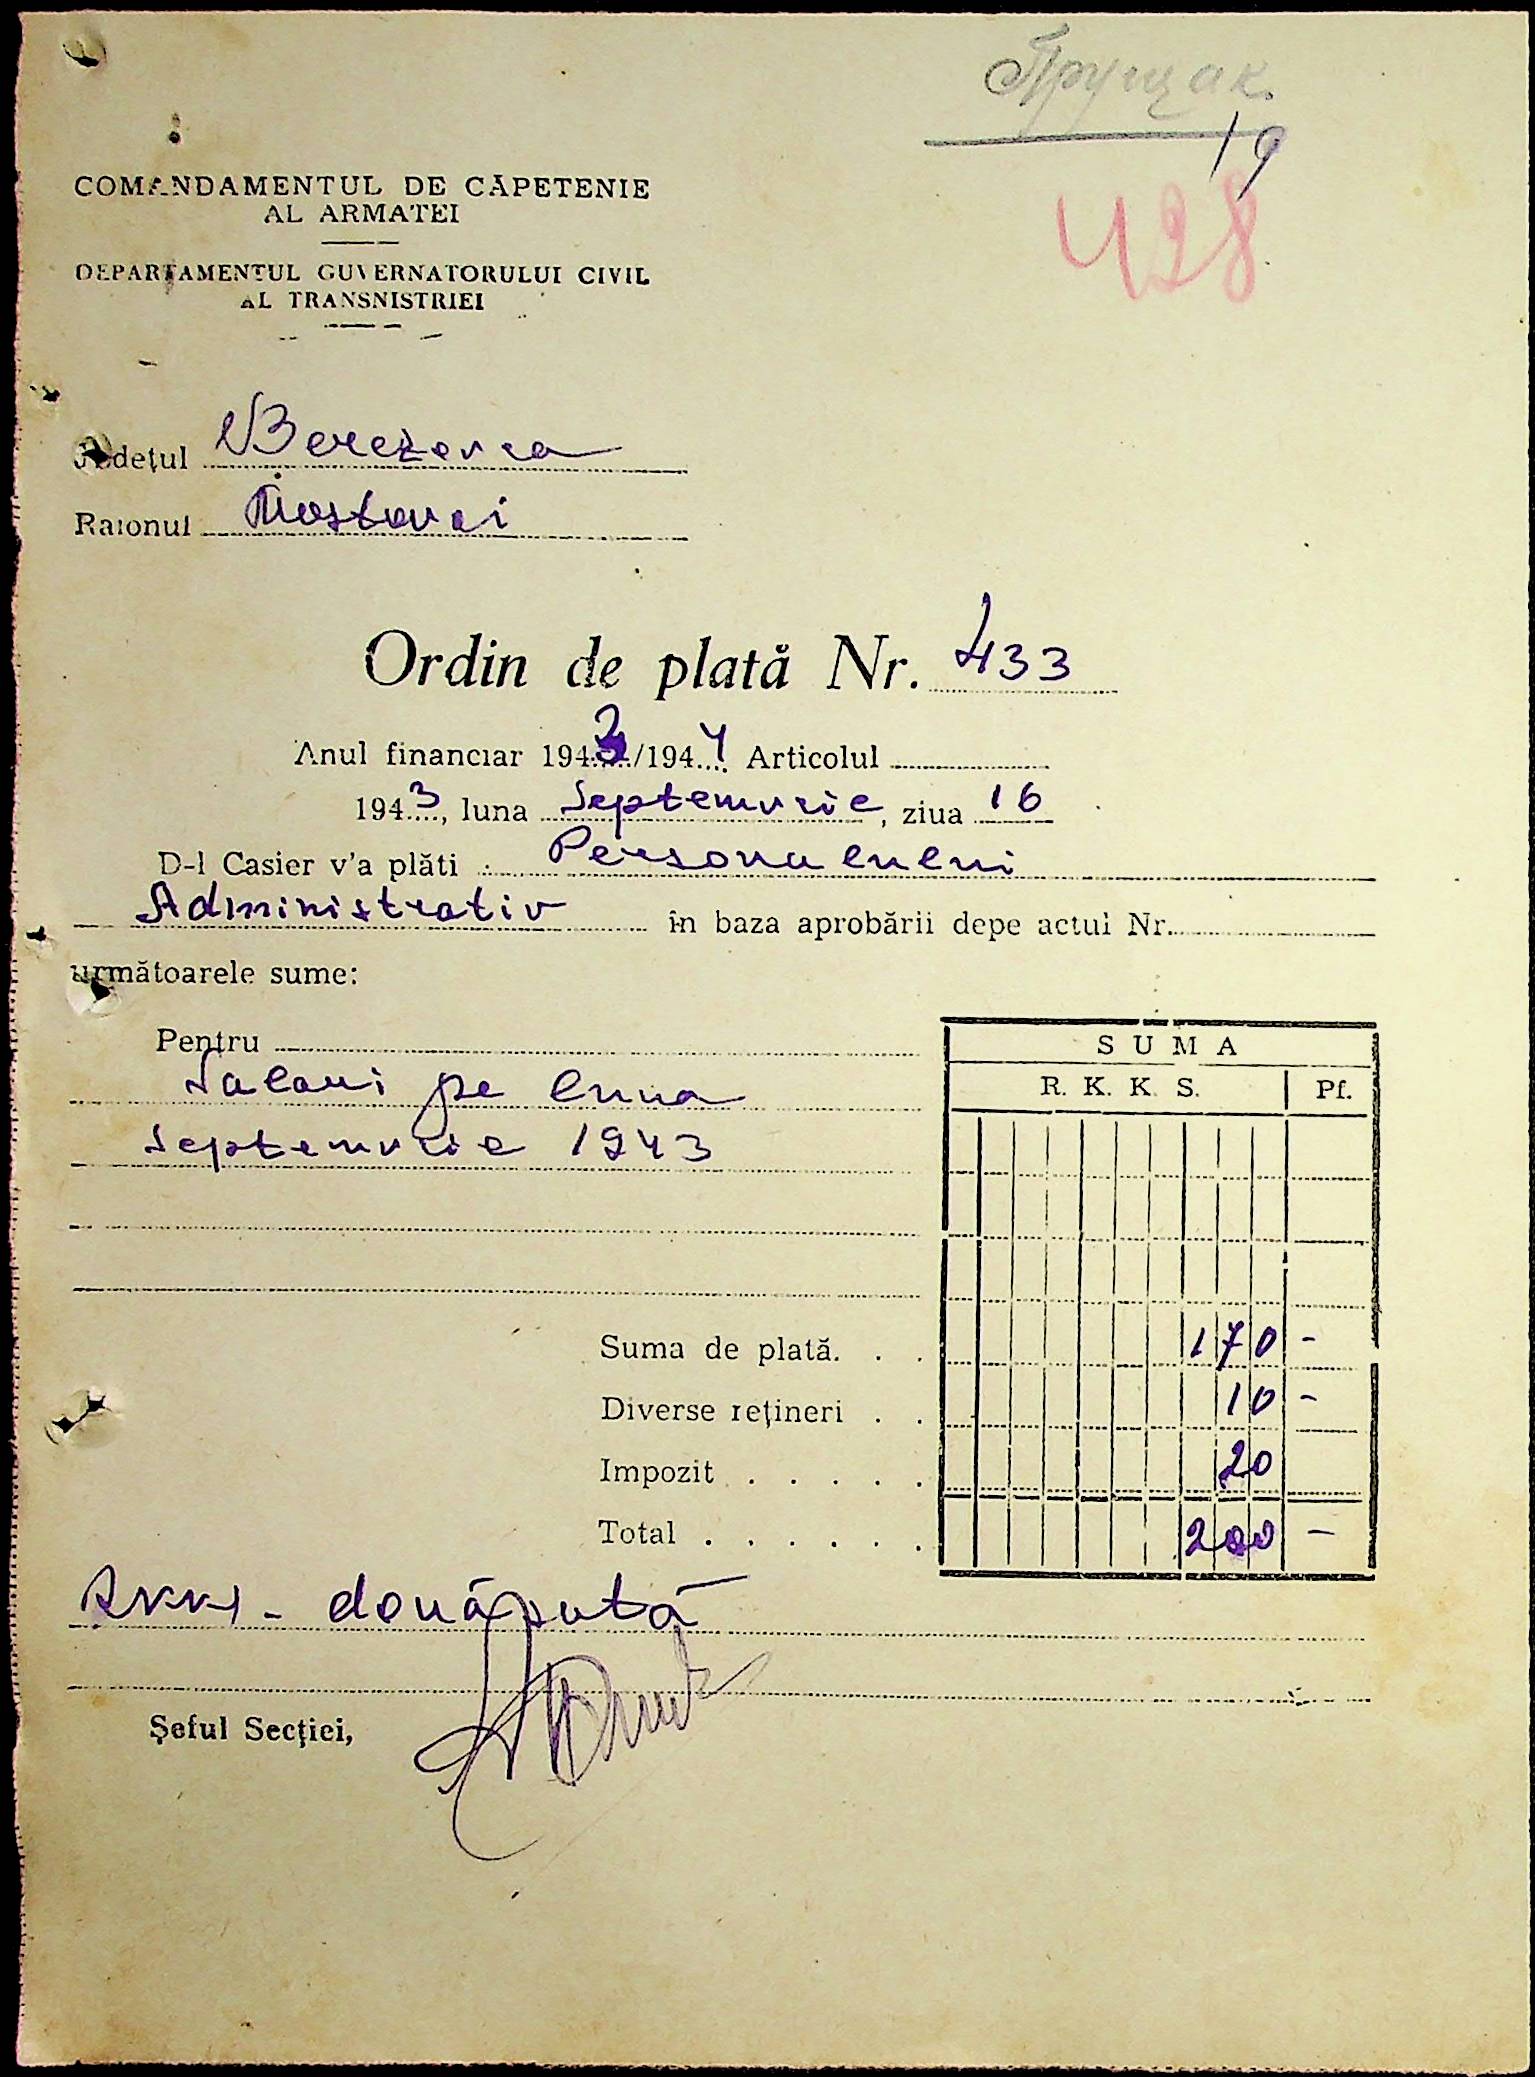 Прущак.
19
428
COMANDAMENTUL DE CĂPETENIE
AL ARMATEI
DEPARTAMENTUL GUVERNATORULUI CIVIL
AL TRANSNISTRIEI
Județul Berezovca
Raionul Mostovoi
Ordin de plată Nr. 433
Anul financiar 1943/1944 Articolul
1943, luna Septemvrie, ziua 16
D-l Casier v'a plăti Personalului
Administrativ în baza aprobării depe actul Nr.
următoarele sume:
Pentru
Salarii pe luna
Septemvrie 1943
SUMA
R. K. K. S. Pf.
Suma de plată. . . 170 -
Diverse rețineri . . 10 -
Impozit . . . . . 20
Total . . . . . . 200 -
RKKS - douăsută
Șeful Secției,